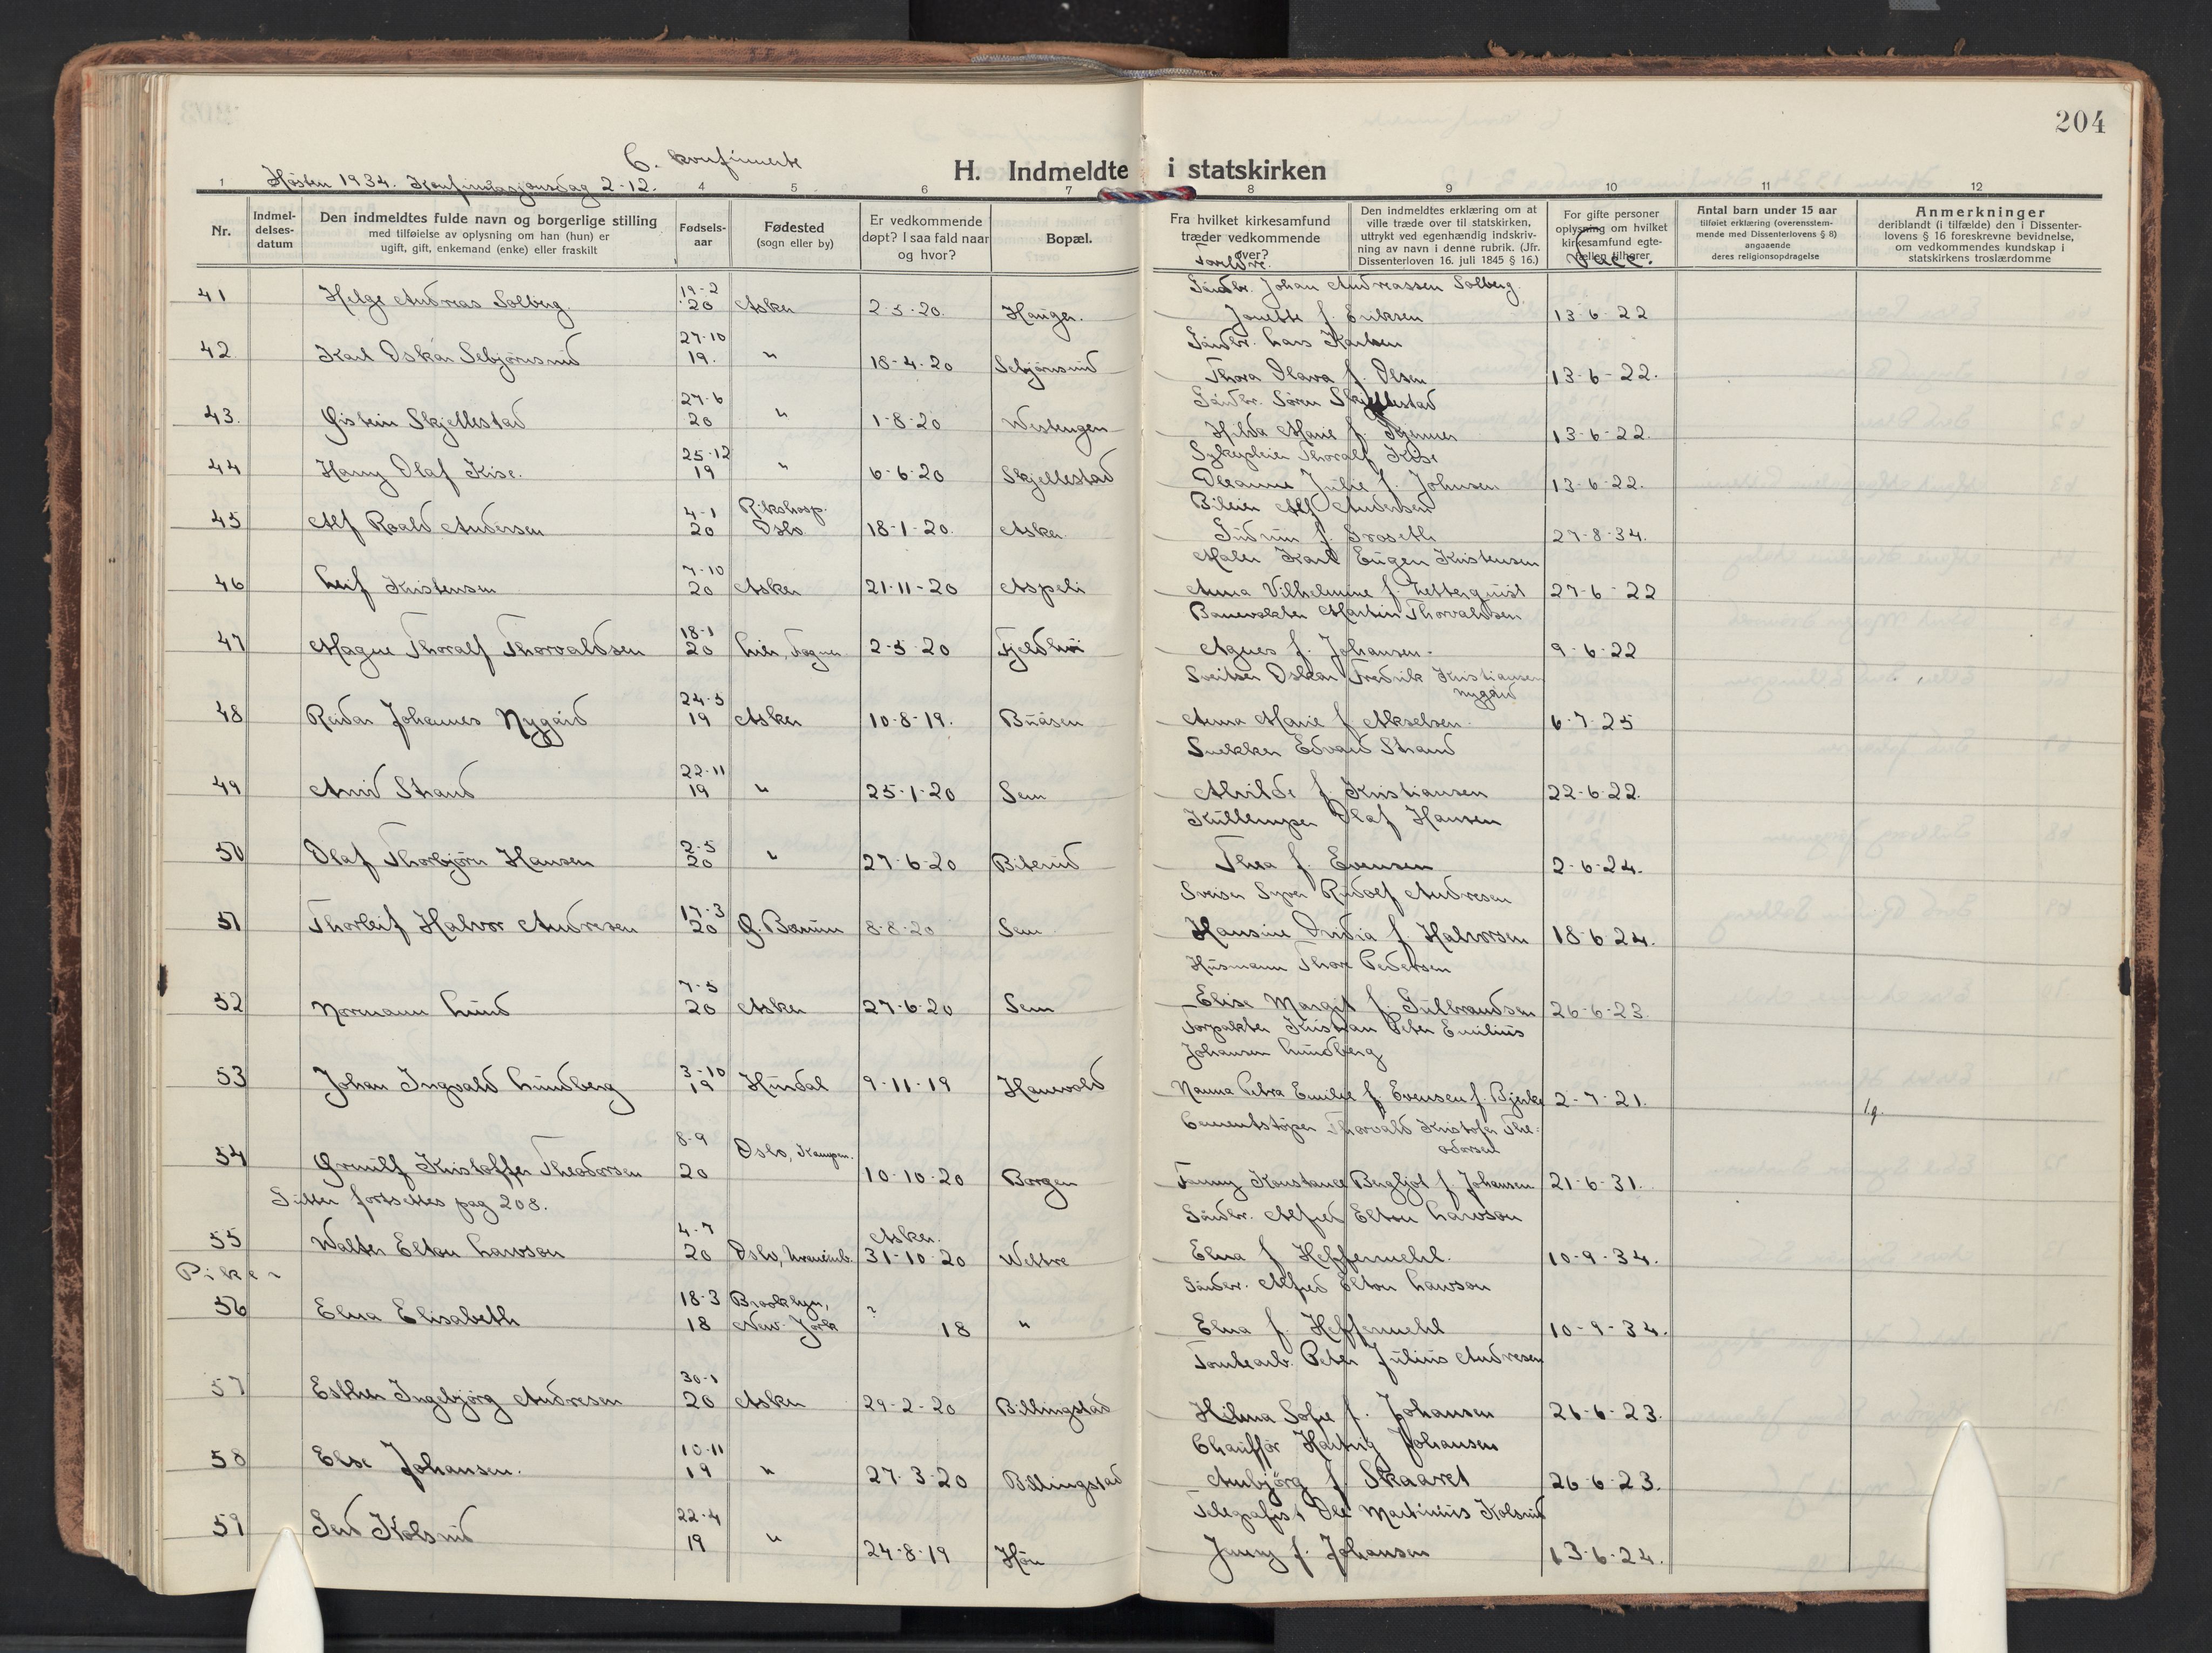 204
C. konfirmerte
Høsten 1934. Konfirmasjonsdag 2-12.
H. Indmeldte i statskirken
1 4 5 6 7 8 9 10 11 12
Nr.
Indmeldelses-datum
Den indmeldtes fulde navn og borgerlige stilling
med tilføielse av oplysning om han (hun) er
ugift, gift, enkemand (enke) eller fraskilt
Fødsels-
aar
Fødested
(sogn eller by)
Er vedkommende
døpt? I saa fald naar
og hvor?
Bopæl.
Fra hvilket kirkesamfund
træder vedkommende
over?
Foreldre.
Den indmeldtes erklæring om at
ville træde over til statskirken,
uttrykt ved egenhændig indskriv-
ning av navn i denne rubrik. (Jfr.
Dissenterloven 16. juli 1845 § 16.)
For gifte personer
oplysning om hvilket
kirkesamfund egte-
fællen tilhører
Vacc.
Antal barn under 15 aar
tilføiet erklæring (overensstem-
mende med Dissenterlovens § 8)
angaaende
deres religionsopdragelse
Anmerkninger
deriblandt (i tilfælde) den i Dissenter-
lovens § 16 foreskrevne bevidnelse,
om vedkommendes kundskap i
statskirkens troslærdomme
Gårdbr. Johan Andreassen Solberg
41 Helge Andreas Solberg 19-2 20 Asker 2-5-20. Hauger. Jonette f. Eriksen 13-6-22
Gårdbr. Lars Karlsen
42 Karl Oskar Sebjørnsrud 27-10 19. " 18-4-20 Sebjørnsrud Thora Olava f. Olsen 13-6-22.
Gårdbr. Søren Skjellestad
43. Øistein Skjellestad 27-6 20 " 1-8-20 Westengen Hilda Marie f. 13-6-22.
Sykepleier Thoralf Kise
44 Harry Olaf Kise. 25-12 19 " 6-6-20 Skjellestad Oleanna Julie f. Johnsen 13-6-22.
Bileier Alf Andersen
45 Alf Roald Andersen 4-1 20 Rikshosp. Oslo 18-1-20. Asker Gudrun f. Groseth 27-8-34.
Maler Karl Eugen Kristensen
46 Leif Kristensen 7-10 20 Asker 21-11-20 Aspeli Anna Vilhelmine f. Zetterquist 27-6-22
Banevokter Martin Thorvaldsen
47 Magne Thoralf Thorvaldsen 18-1 20 Lier, 2-5-20 Fjeldhøi Agnes f. Johansen. 9-6-22
Sveitser Oskar Fredrik Kristiansen
Nygård
48 Reidar Johannes Nygård 24-5 19 Asker 10-8-19. Buåsen Anna Marie f. Akselsen. 6-7-25
Snekker Edvard Strand
49 Arvid Strand 22-11 19 " 25-1-20 Sem Alvilde f. Kristiansen 22-6-22.
Kullemper Olaf Hansen
50 Olaf Thorbjørn Hansen 2-5 20 " 27-6-20 Biterud Thea f. Evensen 2-6-24.
Sveiser Syver Rudolf Andresen
51 Thorleif Halvor Andresen 17-3 20 Ø. Bærum 8-8-20 Sem Hansine Ovidia f. Halvorsen 18-6-24.
Husmann Thore Pedersen
52 Normann Lund 7-5 20 Asker 27-6-20 Sem Elise Margit f. Gulbrandsen 26-6-23.
Forpakter Kristian Peter Emilius
Johansen Lundberg
53 Johan Ingvald Lundberg 3-10 19 Hurdal 9-11-19 Hanevold Nanna Petra Emilie f. Evensen f. Bjerke 2-7-21.
Cementstøper Thorvald Kristofer The-
odorsen
54 Ørnulf Kristoffer Theodorsen 8-9 20 Oslo, Kampen. 10-10-20 Borgen Fanny Konstance Bergljot f. Johansen 21-6-31.
Gutter fortsettes pag 208.
Gårdbr. Alfred Elton Lawson
55 Walter Elton Lawson 4-7 20 Oslo, Uranienb. Asker. 31-10-20 Wettre Elna f. Heffermehl. 10-9-34.
Piker
Gårdbr. Alfred Elton Lawson
56 Elna Elisabeth 18-3 18 Brooklyn, New-York ? 18 " Elna f. Heffermehl 10-9-34.
Tomtearb. Peter Julius Andresen
57 Esther Ingebjørg Andresen 30-1 20 Asker 29-2-20 Billingstad Hilma Sofie f. Johansen 26-6-23.
Chauffør Hartvig Johansen
58 Else Johansen. 10-11 19 " 27-3-20 Billingstad Anbjørg f. Skaaret 26-6-23.
Telegrafist Ole Martinius Kolsrud
59 Gerd Kolsrud 22-4 19 " 24-8-19 Høn Jenny f. Johansen 13-6-24.